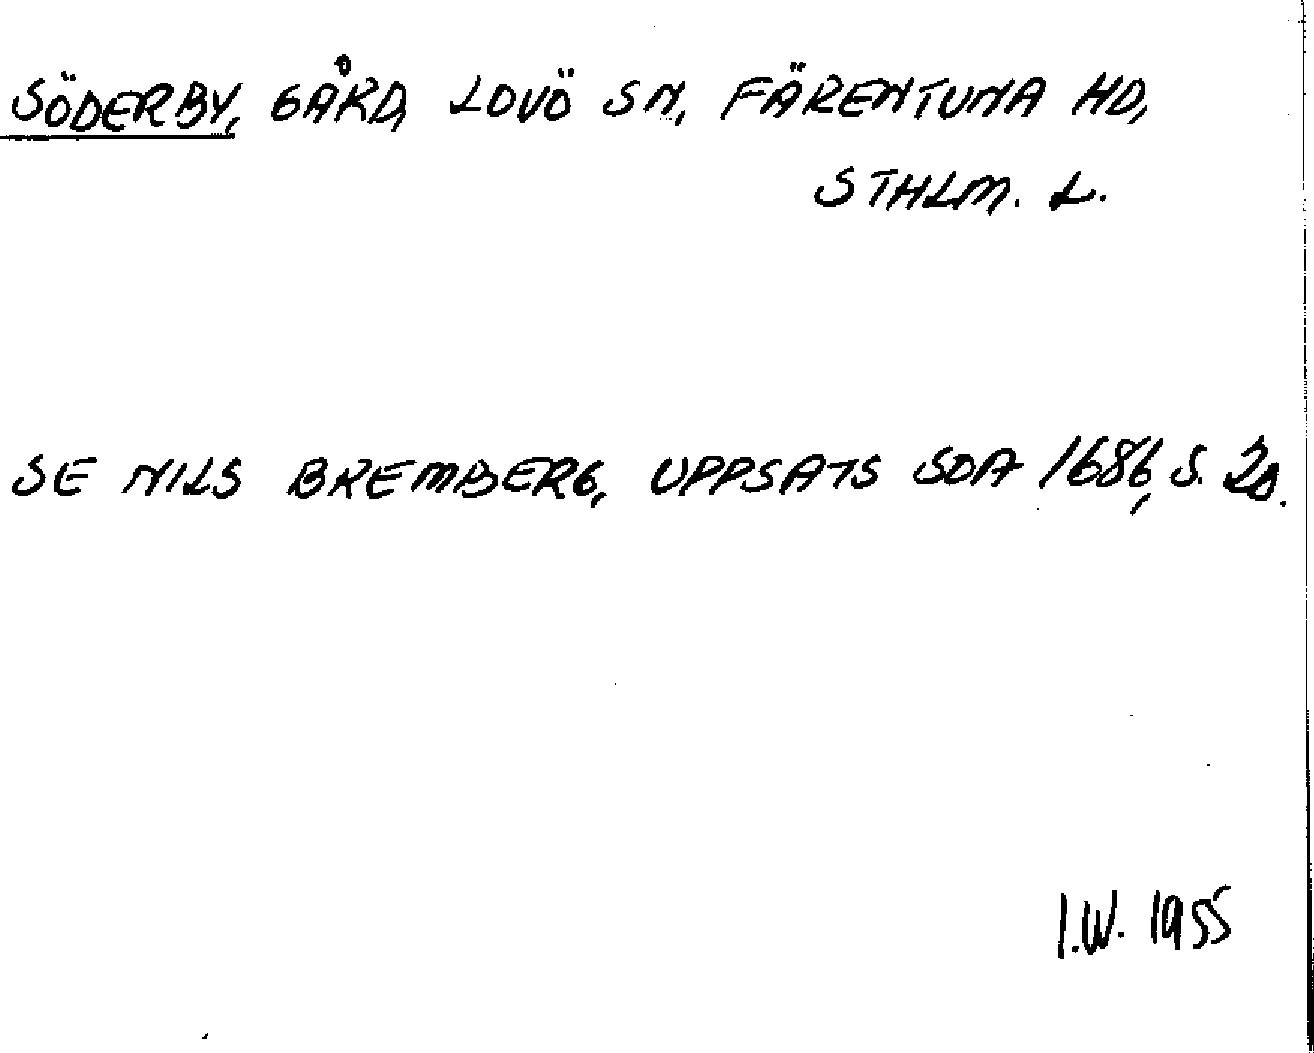 SÖDERBY, GÅRD, LOVÖ SN, FÄRENTUNA HD,
STHLM. L.
SE NILS BREMBERG, UPPSATS SOA 1686, S.
I.W. 1955